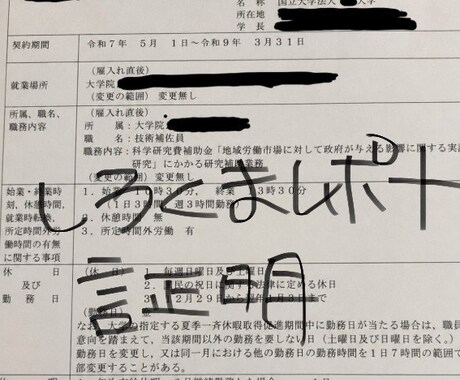 名 称 国立大学法人 大学
所在地
学 長
契約期間 令和7年 5月 1日~令和9年 3月31日
(雇入れ直後)
就業場所 大学院
(変更の範囲) 変更無し
(雇入れ直後)
所属、職名、 所 属:大学院
職務内容 職 名:技術補佐員
職務内容:科学研究費補助金「地域労働市場に対して政府が与える影響に関する実証
研究」にかかる研究補助業務
(変更の範囲) 変更無し
始業・終業時 1.始業 時30分, 終業 3時30分
刻、休憩時間、 (1日3時間 週3時間勤務)
就業時転換、 休憩時間 無
所定時間外労 3.所定時間外労働 有
働時間の有無
に関する事項
しろくまレポート
証明
休 日 (休 日) 1 毎週日曜日及び土曜日
及び 2 国民の祝日に関する法律に定める休日
勤 務 日 3 12月29日から翌年1月3日まで
なお、大学の指定する夏季一斉休暇取得促進期間中に勤務日が当たる場合は、職員
意向を踏まえて、当該期間以外の勤務を要しない日(土曜日及び日曜日を除く。)
勤務日を変更し、又は同一月における他の勤務日の勤務時間を1日7時間の範囲で
部変更することがある。